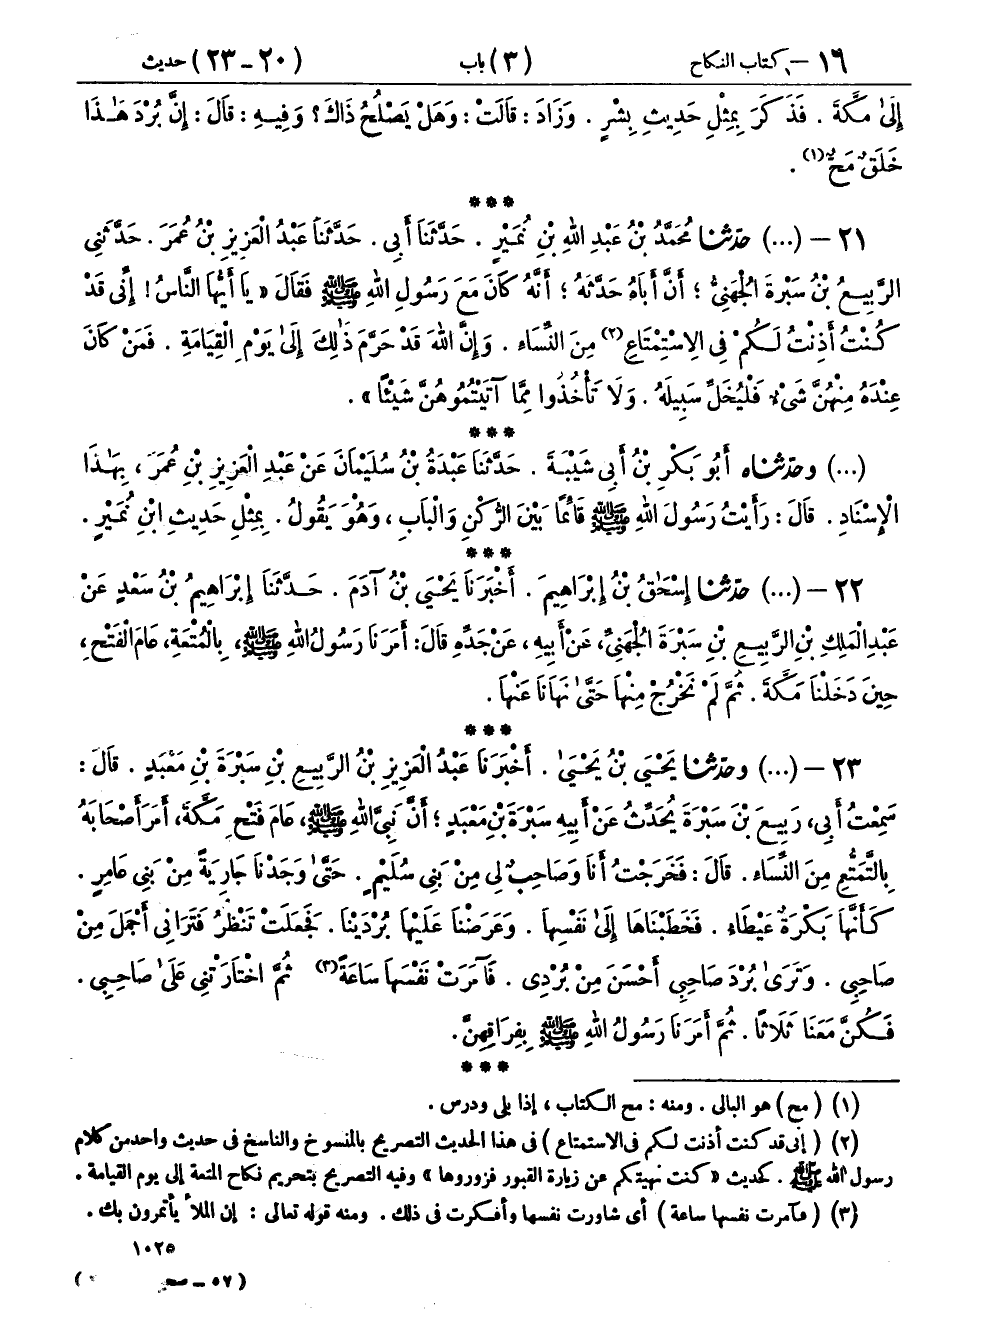 ١٦ – كتاب النكاح (٣) باب (٢٠ – ٢٣) حديث
إِلَىٰ مَكَّةَ . فَذَكَرَ بِمِثْلِ حَدِيثِ بِشْرٍ . وَزَادَ : قَالَتْ : وَهَلْ يَصْلُحُ ذَاكَ ؟ وَفِيهِ : قَالَ : إِنَّ بُرْدَ هَـٰذَا
خَلَقٌ مَحٌّ (١) .
***
٢١ – (...) حدّثنا مُحَمَّدُ بْنُ عَبْدِ اللهِ بْنِ نُمَيْرٍ . حَدَّثَنَا أَبِي . حَدَّثَنَا عَبْدُ الْعَزِيزِ بْنُ عُمَرَ . حَدَّثَنِي
الرَّبِيعُ بْنُ سَبْرَةَ الْجُهَنِيُّ ؛ أَنَّ أَبَاهُ حَدَّثَهُ ؛ أَنَّهُ كَانَ مَعَ رَسُولِ اللهِ ﷺ فَقَالَ « يَا أَيُّهَا النَّاسُ ! إِنِّي قَدْ
كُنْتُ أَذِنْتُ لَكُمْ فِي الِاسْتِمْتَاعِ (٢) مِنَ النِّسَاءِ . وَإِنَّ اللهَ قَدْ حَرَّمَ ذَٰلِكَ إِلَىٰ يَوْمِ الْقِيَامَةِ . فَمَنْ كَانَ
عِنْدَهُ مِنْهُنَّ شَيْءٌ فَلْيُخَلِّ سَبِيلَهُ . وَلَا تَأْخُذُوا مِمَّا آتَيْتُمُوهُنَّ شَيْئًا » .
***
(...) وحدّثناه أَبُو بَكْرِ بْنُ أَبِي شَيْبَةَ . حَدَّثَنَا عَبْدَةُ بْنُ سُلَيْمَانَ عَنْ عَبْدِ الْعَزِيزِ بْنِ عُمَرَ ، بِهَـٰذَا
الْإِسْنَادِ . قَالَ : رَأَيْتُ رَسُولَ اللهِ ﷺ قَائِمًا بَيْنَ الرُّكْنِ وَالْبَابِ ، وَهُوَ يَقُولُ . بِمِثْلِ حَدِيثِ ابْنِ نُمَيْرٍ .
***
٢٢ – (...) حدّثنا إِسْحَٰقُ بْنُ إِبْرَاهِيمَ . أَخْبَرَنَا يَحْيَىٰ بْنُ آدَمَ . حَدَّثَنَا إِبْرَاهِيمُ بْنُ سَعْدٍ عَنْ
عَبْدِ الْمَلِكِ بْنِ الرَّبِيعِ بْنِ سَبْرَةَ الْجُهَنِيِّ ، عَنْ أَبِيهِ ، عَنْ جَدِّهِ قَالَ : أَمَرَنَا رَسُولُ اللهِ ﷺ ، بِالْمُتْعَةِ ، عَامَ الْفَتْحِ ،
حِينَ دَخَلْنَا مَكَّةَ . ثُمَّ لَمْ نَخْرُجْ مِنْهَا حَتَّىٰ نَهَانَا عَنْهَا .
***
٢٣ – (...) وحدّثنا يَحْيَىٰ بْنُ يَحْيَىٰ . أَخْبَرَنَا عَبْدُ الْعَزِيزِ بْنُ الرَّبِيعِ بْنِ سَبْرَةَ بْنِ مَعْبَدٍ . قَالَ :
سَمِعْتُ أَبِي ، رَبِيعَ بْنَ سَبْرَةَ يُحَدِّثُ عَنْ أَبِيهِ سَبْرَةَ بْنِ مَعْبَدٍ ؛ أَنَّ نَبِيَّ اللهِ ﷺ ، عَامَ فَتْحِ مَكَّةَ ، أَمَرَ أَصْحَابَهُ
بِالتَّمَتُّعِ مِنَ النِّسَاءِ . قَالَ : فَخَرَجْتُ أَنَا وَصَاحِبٌ لِي مِنْ بَنِي سُلَيْمٍ . حَتَّىٰ وَجَدْنَا جَارِيَةً مِنْ بَنِي عَامِرٍ .
كَأَنَّهَا بَكْرَةٌ عَيْطَاءُ . فَخَطَبْنَاهَا إِلَىٰ نَفْسِهَا . وَعَرَضْنَا عَلَيْهَا بُرْدَيْنَا . فَجَعَلَتْ تَنْظُرُ فَتَرَانِي أَجْمَلَ مِنْ
صَاحِبِي . وَتَرَىٰ بُرْدَ صَاحِبِي أَحْسَنَ مِنْ بُرْدِي . فَآمَرَتْ نَفْسَهَا سَاعَةً (٣) ثُمَّ اخْتَارَتْنِي عَلَىٰ صَاحِبِي .
فَكُنَّ مَعَنَا ثَلَاثًا . ثُمَّ أَمَرَنَا رَسُولُ اللهِ ﷺ بِفِرَاقِهِنَّ .
***
(١) ( مح ) هو البالى . ومنه : مح الكتاب ، إذا بلى ودرس .
(٢) ( إنى قد كنت أذنت لكم فى الاستمتاع ) فى هذا الحديث التصريح بالمنسوخ والناسخ فى حديث واحد من كلام
رسول الله ﷺ . كحديث « كنت نهيتكم عن زيارة القبور فزوروها » وفيه التصريح بتحريم نكاح المتعة إلى يوم القيامة .
(٣) ( فآمرت نفسها ساعة ) أى شاورت نفسها وأفكرت فى ذلك . ومنه قوله تعالى : إن الملأ يأتمرون بك .
١٠٢٥
( ٥٧ – صحـ )